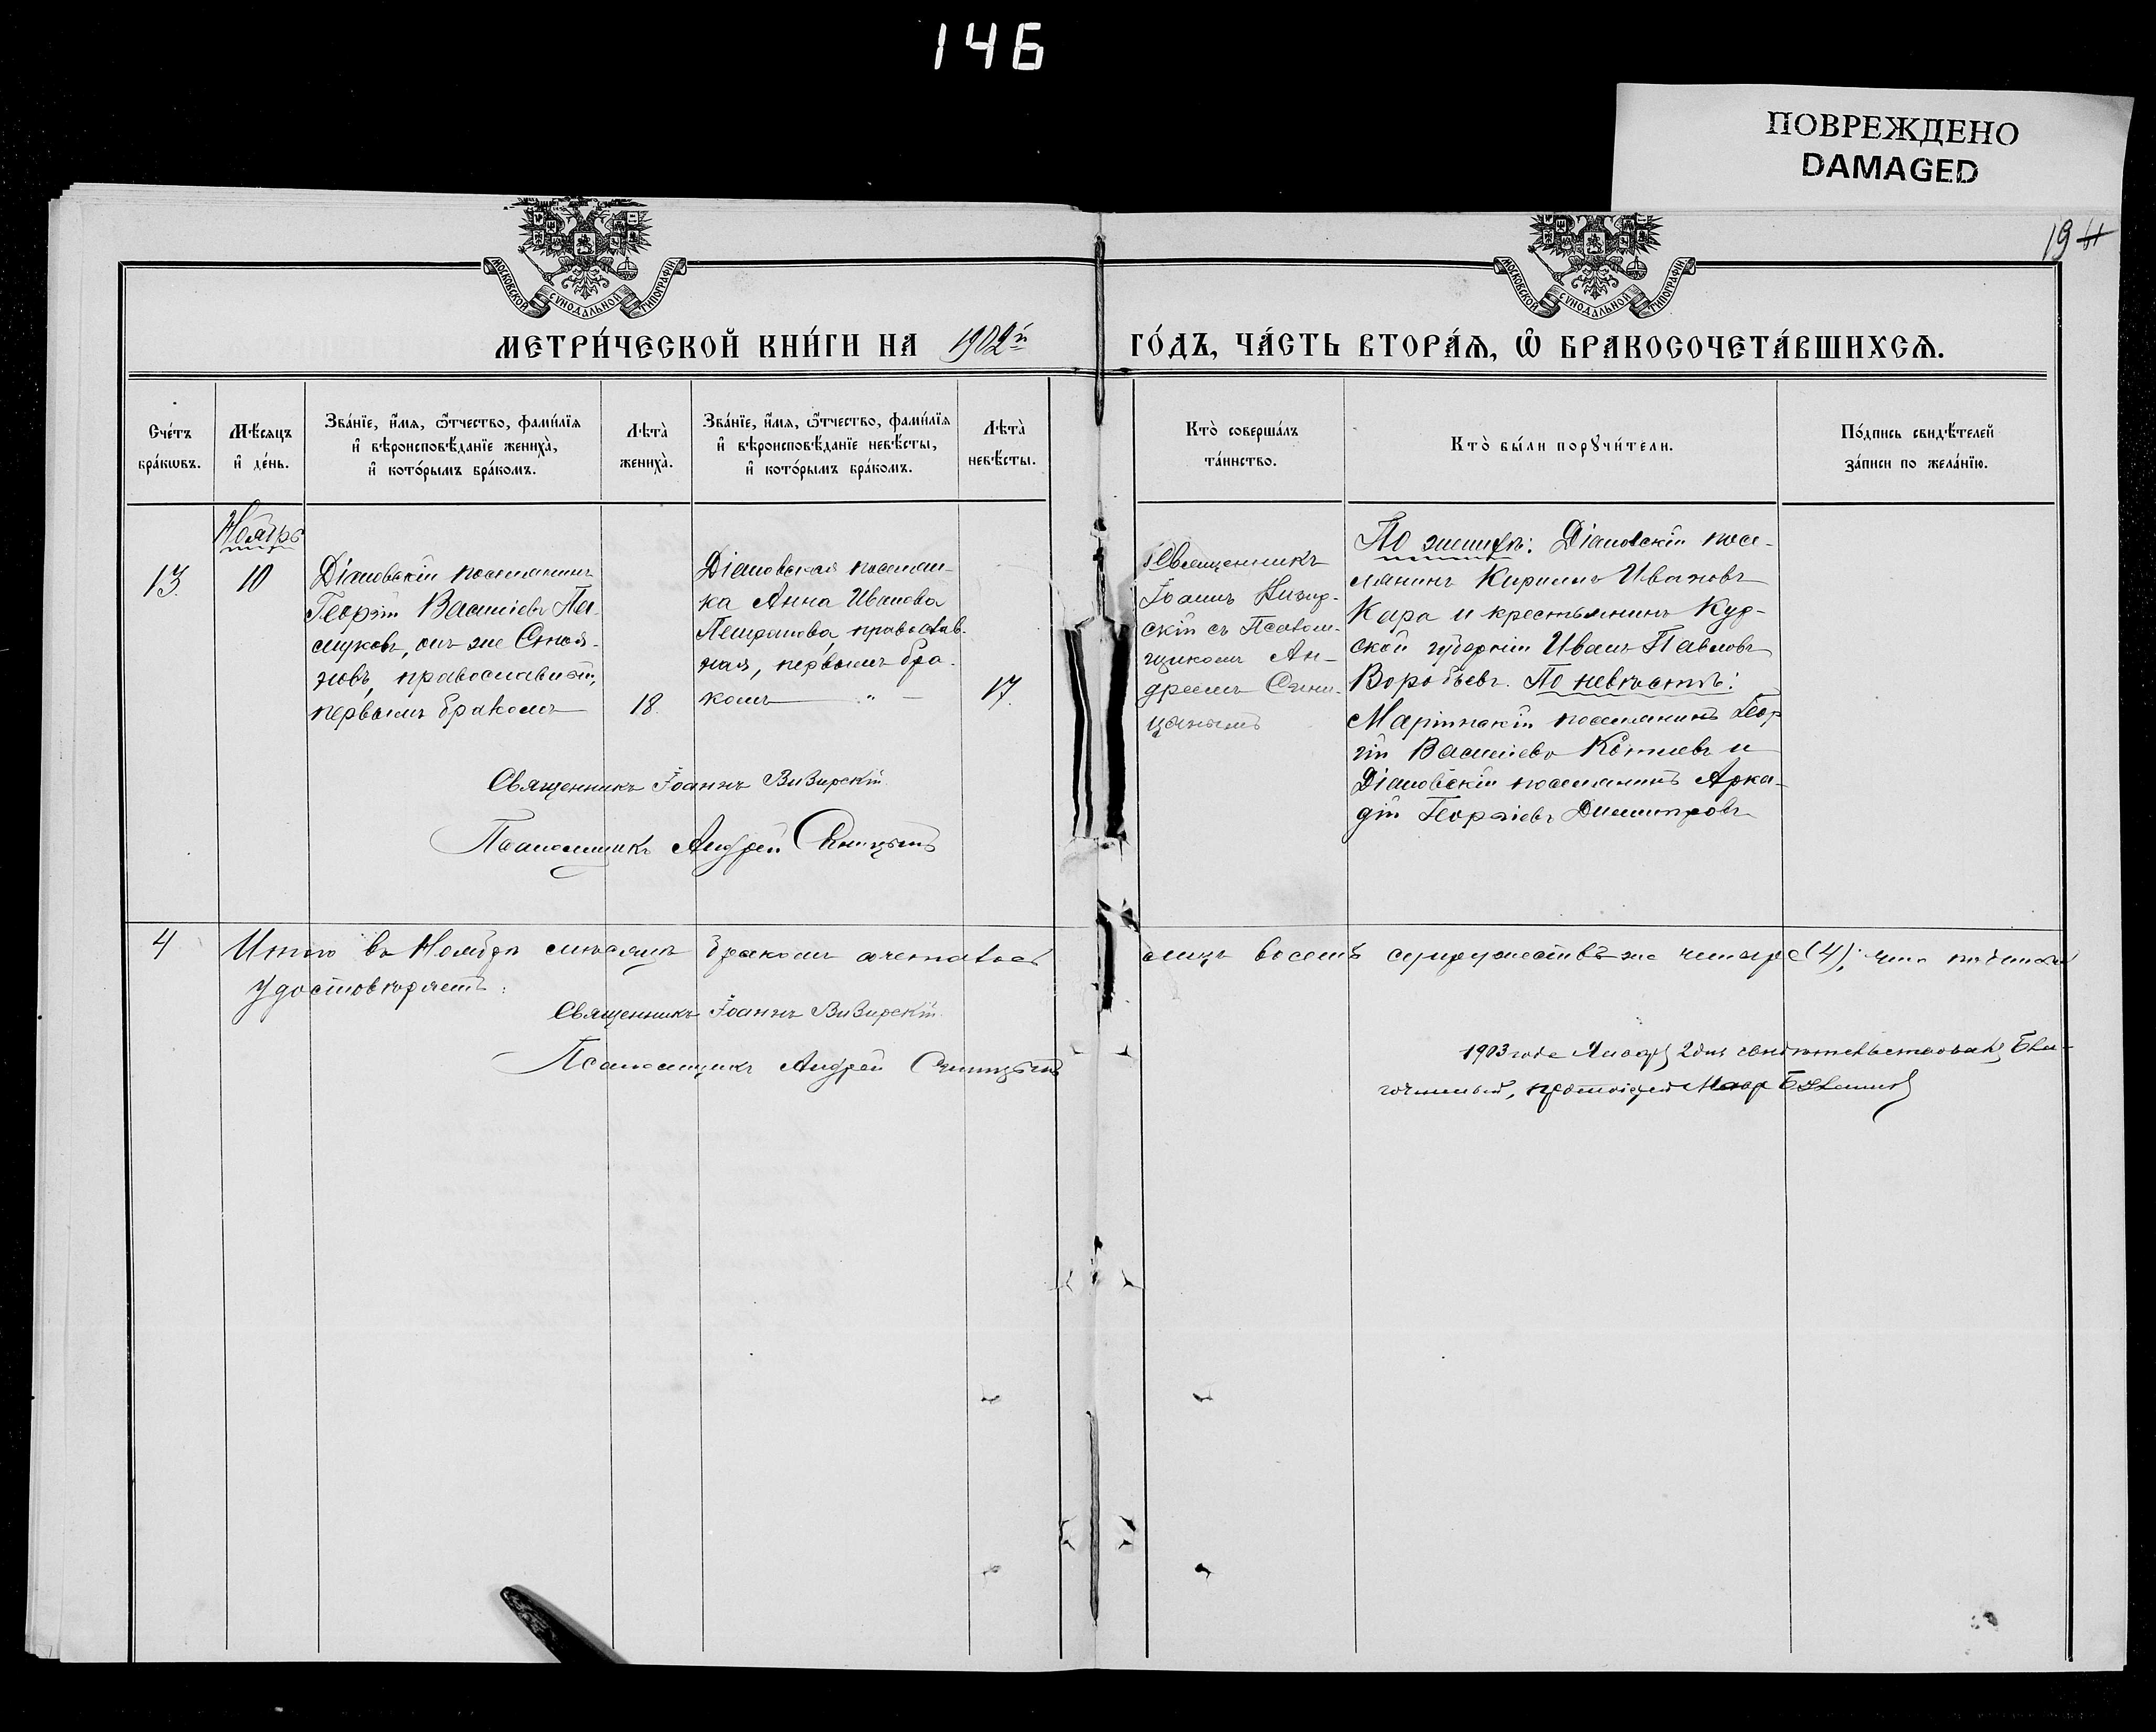 146
ПОВРЕЖДЕНО
DAMAGED
19
МОСКОВСКОЙ СѴНОДАЛЬНОЙ ТИПОГРАФІИ
МОСКОВСКОЙ СѴНОДАЛЬНОЙ ТИПОГРАФІИ
МЕТРИ́ЧЕСКОЙ КНИ́ГИ НА 1902й ГО́ДЪ, ЧА́СТЬ ВТОРА́Ѧ, Ѽ БРАКОСОЧЕТА́ВШИХСѦ.
Сче́тъ
бра́кѡвъ.
Мѣ́сяцъ
и҆ де́нь.
Зва́нїе, и҆́мя, ѻ҆́тчество, фами́лїя
и҆ вѣроисповѣ́данїе жениха̀,
и҆ кото́рымъ бра́комъ.
Лѣта̀
жениха̀.
Зва́нїе, и҆́мя, ѻ҆́тчество, фами́лїя
и҆ вѣроисповѣ́данїе невѣ́сты,
и҆ кото́рымъ бра́комъ.
Лѣта̀
невѣ́сты.
Кто̀ соверша́лъ
та́инство.
Кто̀ бы́ли порꙋчи́тели.
По́дпись свидѣ́телей
за́писи по жела́нїю.
Ноябрь
13.
10
Діановскій поселянинъ
Георгій Василіевъ Па-
слуковъ, онъ же Стоя-
новъ, православный,
первымъ бракомъ
18.
Діановская поселян-
ка Анна Иванова
православ-
ная, первымъ бра-
комъ
17.
Священникъ
Іоаннъ Визир-
скій съ Псалом-
щикомъ Ан-
дреемъ Сини-
цынымъ
По женихѣ: Діановскій посе-
лянинъ Кириллъ Ивановъ
Кара и крестьянинъ Кур-
ской губерніи Иванъ Павловъ
Воробьевъ. По невѣстѣ:
Маріинскій поселянинъ Геор-
гій Василіевъ и
Діановскій поселянинъ Арка-
дій Георгіевъ Димитровъ
Священникъ Іоаннъ Визирскій
Псаломщикъ Андрей Синицынъ
4
Итого въ Ноябрѣ мѣсяцѣ бракомъ сочеталось лицъ восемь супружествъ же четыре (4); что подписомъ
удостовѣряетъ:
Священникъ Іоаннъ Визирскій.
Псаломщикъ Андрей Синицынъ
1903 года Января 2 дня свидѣтельствовалъ Бла-
гочинный, протоіерей